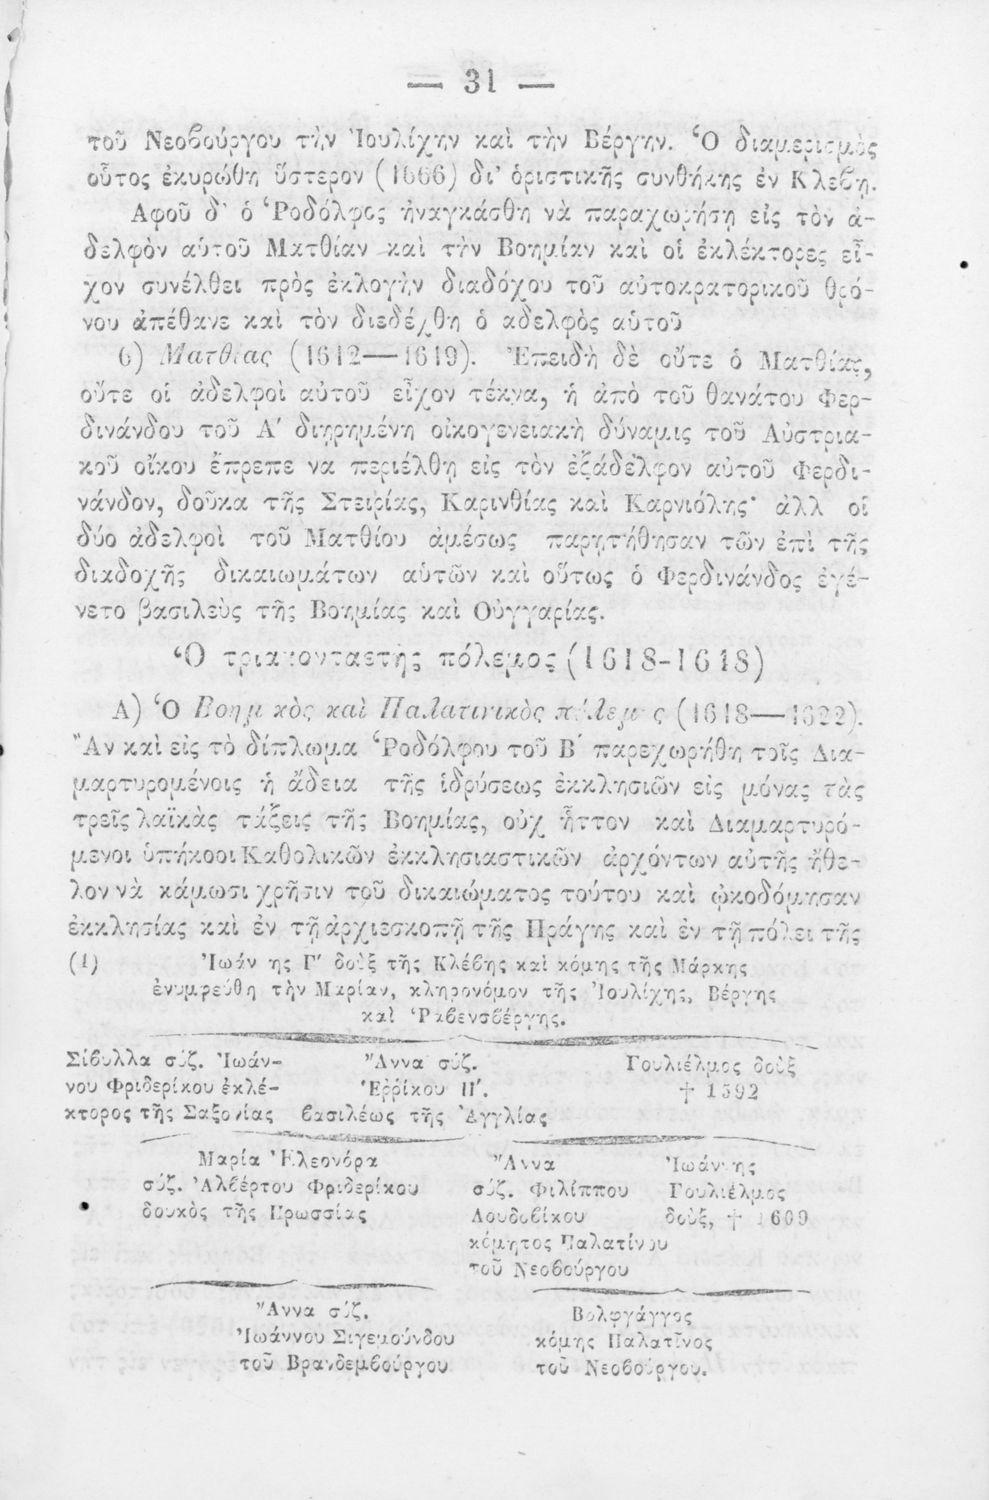 — 31 —
τοῦ Νεοβούργου τὴν Ἰουλίχην καὶ τὴν Βέργην. Ὁ διαμερισμὸς
οὗτος ἐκυρώθη ὕστερον (1666) δι' ὁριστικῆς συνθήκης ἐν Κλέβη.
Αφοῦ δ' ὁ Ῥοδόλφος ἠναγκάσθη νὰ παραχωρήσῃ εἰς τὸν ἀ-
δελφὸν αὑτοῦ Ματθίαν καὶ τὴν Βοημίαν καὶ οἱ ἐκλέκτορες εἶ-
χον συνέλθει πρὸς ἐκλογὴν διαδόχου τοῦ αὐτοκρατορικοῦ θρό-
νου ἀπέθανε καὶ τὸν διεδέχθη ὁ αδελφὸς αὑτοῦ
6) Ματθίας (1612—1619). Ἐπειδὴ δὲ οὔτε ὁ Ματθίας,
οὔτε οἱ ἀδελφοὶ αὐτοῦ εἶχον τέκνα, ἡ ἀπὸ τοῦ θανάτου Φερ-
δινάνδου τοῦ Α' διῃρημένη οἰκογενειακὴ δύναμις τοῦ Αὐστρια-
κοῦ οἴκου ἔπρεπε να περιέλθῃ εἰς τὸν ἐξάδελφον αὐτοῦ Φερδι-
νάνδον, δοῦκα τῆς Στειρίας, Καρινθίας καὶ Καρνιόλης· ἀλλ οἱ
δύο ἀδελφοὶ τοῦ Ματθίου ἀμέσως παρῃτήθησαν τῶν ἐπὶ τῆς
διαδοχῆς δικαιωμάτων αὑτῶν καὶ οὕτως ὁ Φερδινάνδος ἐγέ-
νετο βασιλεὺς τῆς Βοημίας καὶ Οὑγγαρίας.
Ὁ τριακονταετὴς πόλεμος (1618-1648)
Α) Ὁ Βοημικὸς καὶ Παλατινικὸς πόλεμος (1618—1622).
Ἂν καὶ εἰς τὸ δίπλωμα Ῥοδόλφου τοῦ Β' παρεχωρήθη τοῖς Δια-
μαρτυρομένοις ἡ ἄδεια τῆς ἱδρύσεως ἐκκλησιῶν εἰς μόνας τὰς
τρεῖς λαϊκὰς τάξεις τῆς Βοημίας, οὐχ ἧττον καὶ Διαμαρτυρό-
μενοι ὑπήκοοι Καθολικῶν ἐκκλησιαστικῶν ἀρχόντων αὐτῆς ἤθε-
λον νὰ κάμωσι χρῆσιν τοῦ δικαιώματος τούτου καὶ ᾠκοδόμησαν
ἐκκλησίας καὶ ἐν τῇ ἀρχιεσκοπῇ τῆς Πράγης καὶ ἐν τῇ πόλει τῆς
(1) Ἰωάννης Γ' δοὺξ τῆς Κλέβης καὶ κόμης τῆς Μάρκης
ἐνυμφεύθη τὴν Μαρίαν, κληρονόμον τῆς Ἰουλίχης, Βέργης
καὶ Ῥαβενσβέργης.
Σίβυλλα σύζ. Ἰωάν- Ἄννα σύζ. Γουλιέλμος δοὺξ
νου Φριδερίκου ἐκλέ- Ἐρρίκου Η'. † 1592
κτορος τῆς Σαξονίας βασιλέως τῆς Ἀγγλίας
Μαρία Ἐλεονόρα Ἄννα Ἰωάννης
σύζ. Ἀλβέρτου Φριδερίκου σύζ. Φιλίππου Γουλιέλμος
δουκὸς τῆς Πρωσσίας Λουδοβίκου δοὺξ, † 1609
κόμητος Παλατίνου
τοῦ Νεοβούργου
Ἄννα σύζ. Βολφγάγγος
Ἰωάννου Σιγεμούνδου κόμης Παλατῖνος
τοῦ Βρανδεμβούργου τοῦ Νεοβούργου.